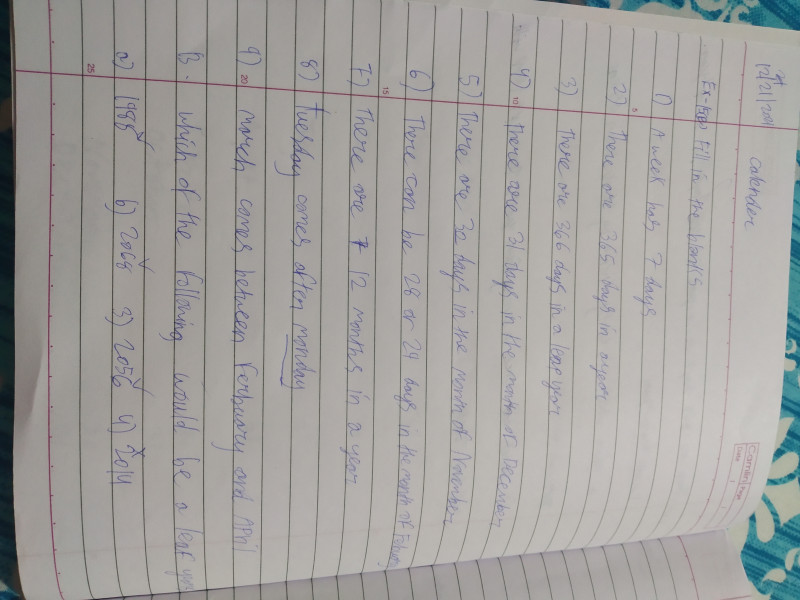 calender
Fill in the blanks
1) A week has 7 days
2) There are 365 days in a year
3) There are 366 days in a leap year
4) There are 31 days in the month of December
5) There are 30 days in the month of November
6) There can be 28 or 29 days in the month of
7) There are 12 months in a year
8) Tuesday comes after monday
9) march comes between Ferbuary and April
B. which of the following would be a leaf
a) 1988 b) 2068 3) 2056 4) 2014
Camlin
Page
Date
5
10
15
20
25